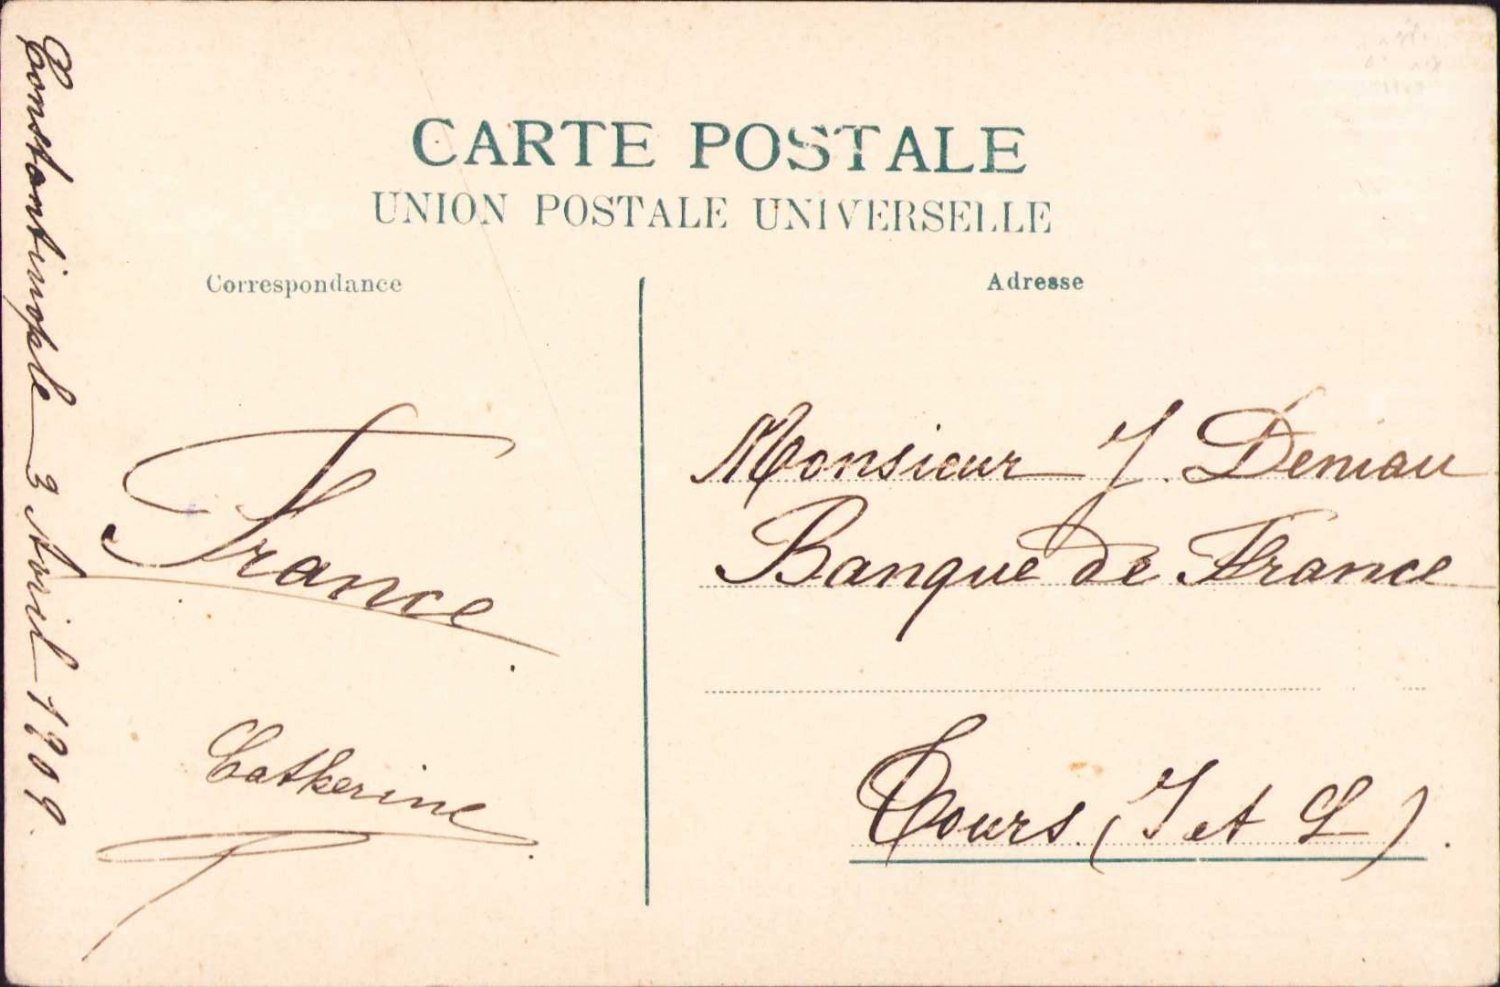 CARTE POSTALE
UNION POSTALE UNIVERSELLE
Correspondance
Adresse
Constantinople 3 Avril 1909.
France
Catherine
Monsieur J. Deniau
Banque de France
Tours (I et L).